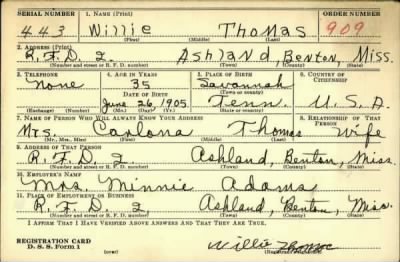 SERIAL NUMBER 1. NAME (Print) ORDER NUMBER
443 Willie Thomas 909
(First) (Middle) (Last)
2. ADDRESS (Print)
R.F.D. 2 Ashland, Benton, Miss.
(Number and street or R. F. D. number) (Town) (County) (State)
3. TELEPHONE 4. AGE IN YEARS 5. PLACE OF BIRTH 6. COUNTRY OF CITIZENSHIP
None 35 Savannah
DATE OF BIRTH (Town or county)
June 26, 1905 Tenn. U.S.A.
(Exchange) (Number) (Mo.) (Day) (Yr.) (State or country)
7. NAME OF PERSON WHO WILL ALWAYS KNOW YOUR ADDRESS 8. RELATIONSHIP OF THAT PERSON
Mrs. Carlona Thomas Wife
(Mr., Mrs., Miss) (First) (Middle) (Last)
9. ADDRESS OF THAT PERSON
R.F.D. 2 Ashland, Benton, Miss.
(Number and street or R. F. D. number) (Town) (County) (State)
10. EMPLOYER'S NAME
Mrs. Minnie Adams
11. PLACE OF EMPLOYMENT OR BUSINESS
R.F.D. 2 Ashland, Benton, Miss.
(Number and street or R. F. D. number) (Town) (County) (State)
I AFFIRM THAT I HAVE VERIFIED ABOVE ANSWERS AND THAT THEY ARE TRUE.
REGISTRATION CARD
D. S. S. Form 1 (over) Willie Thomas